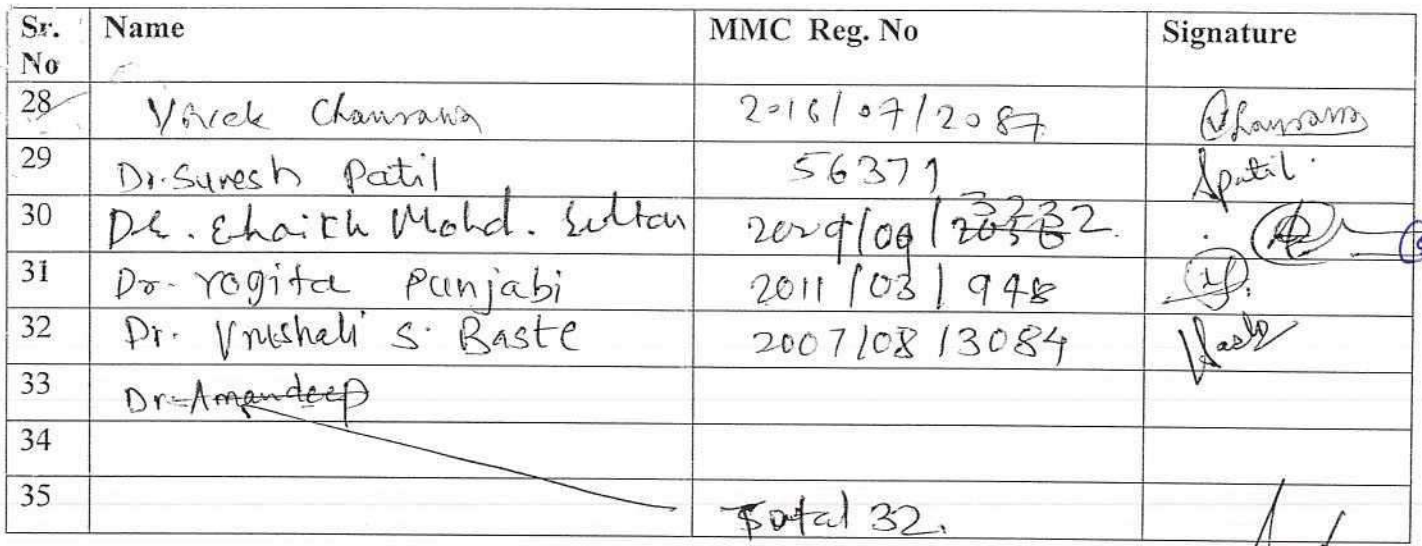 Sr. No Name MMC Reg. No Signature
28 Vivek Chansana 2016/07/2087
29 Dr. Suresh Patil 56371 Spatil
30 Dr. Shaikh Mohd. Sultan 3232
31 Dr. Yogita Punjabi 2011/03/948
32 Dr. Vrushali S. Baste 2007/08/3084
33 Dr. Amandeep
34
35 Total 32.